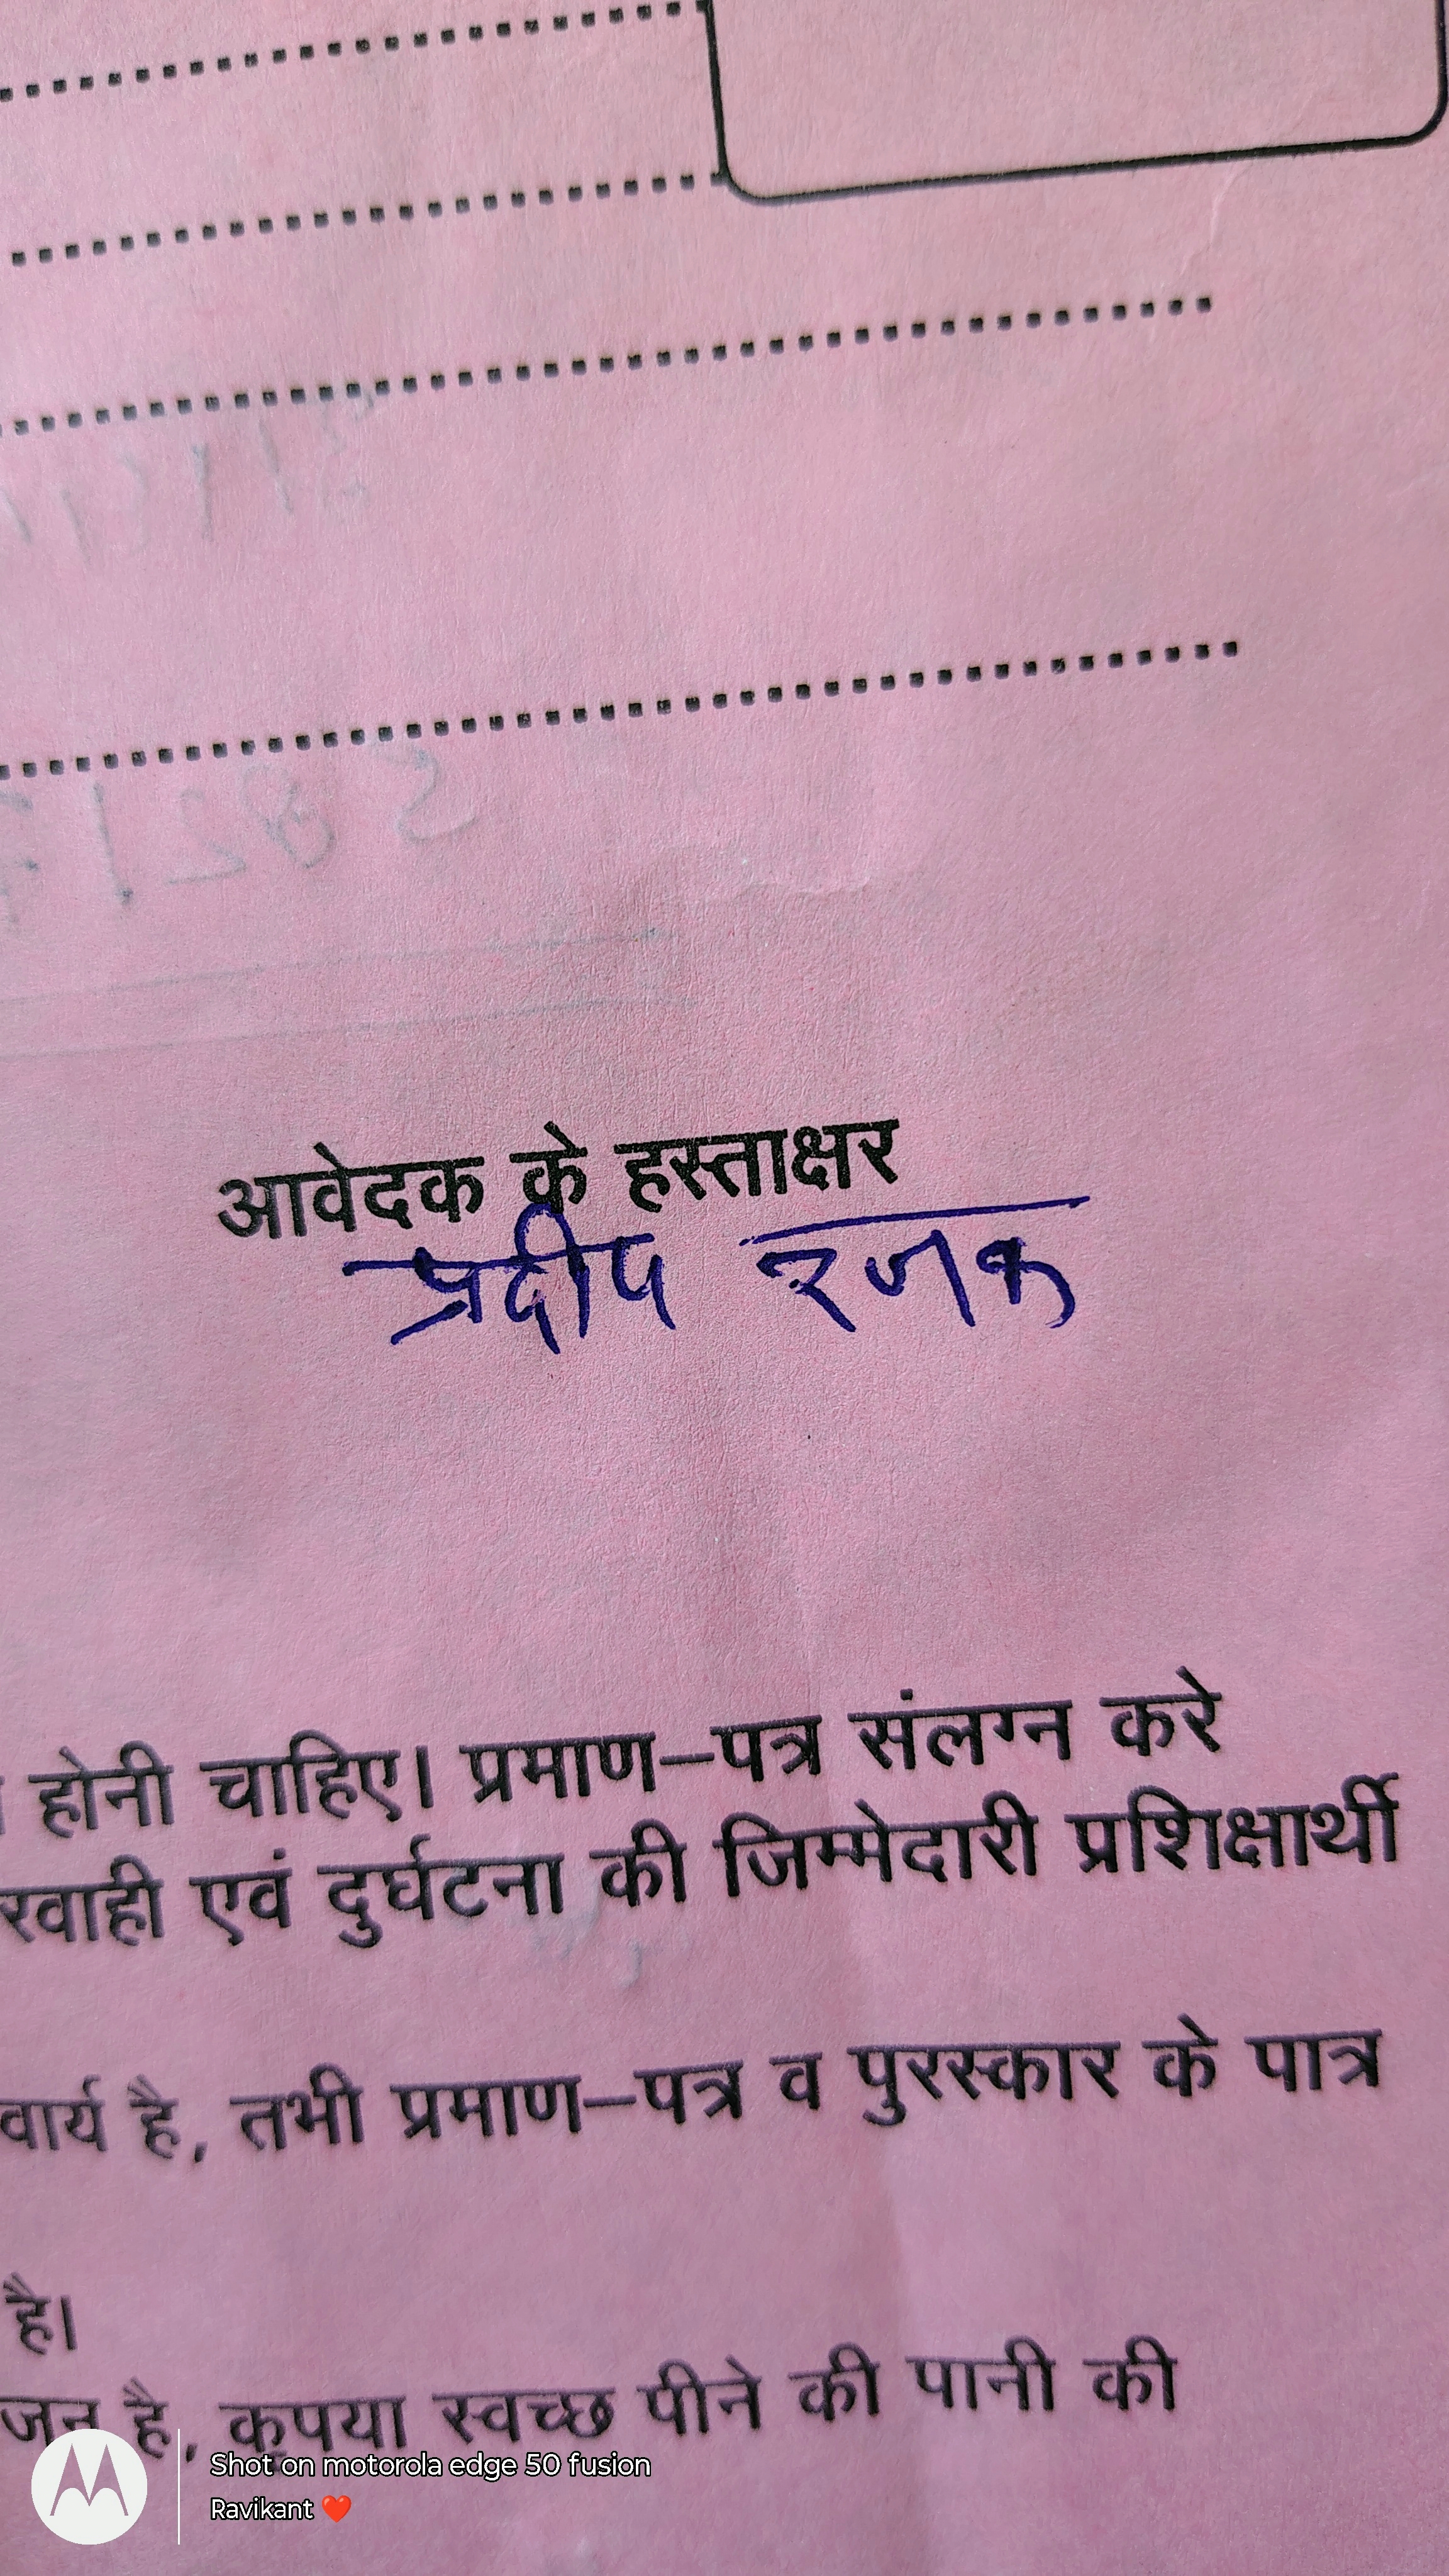 आवेदक के हस्ताक्षर
प्रदीप रजक
होनी चाहिए। प्रमाण–पत्र संलग्न करे
रवाही एवं दुर्घटना की जिम्मेदारी प्रशिक्षार्थी
वार्य है, तभी प्रमाण–पत्र व पुरस्कार के पात्र
है।
जन है, कृपया स्वच्छ पीने की पानी की
Shot on motorola edge 50 fusion
Ravikant ❤️